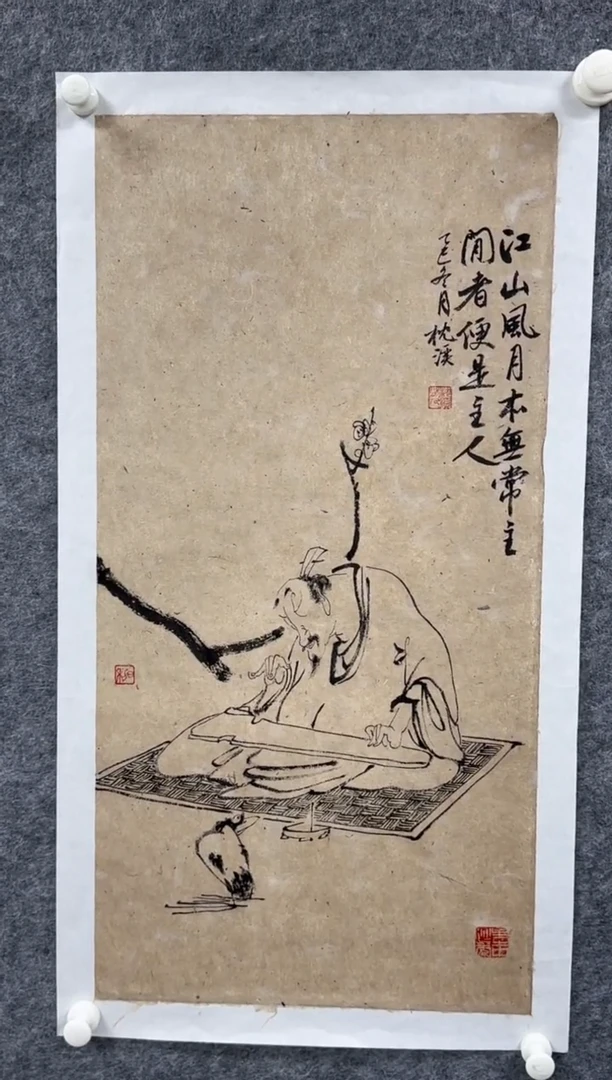 江山風月本無常主
閒者便是主人
乙巳冬月枕溪